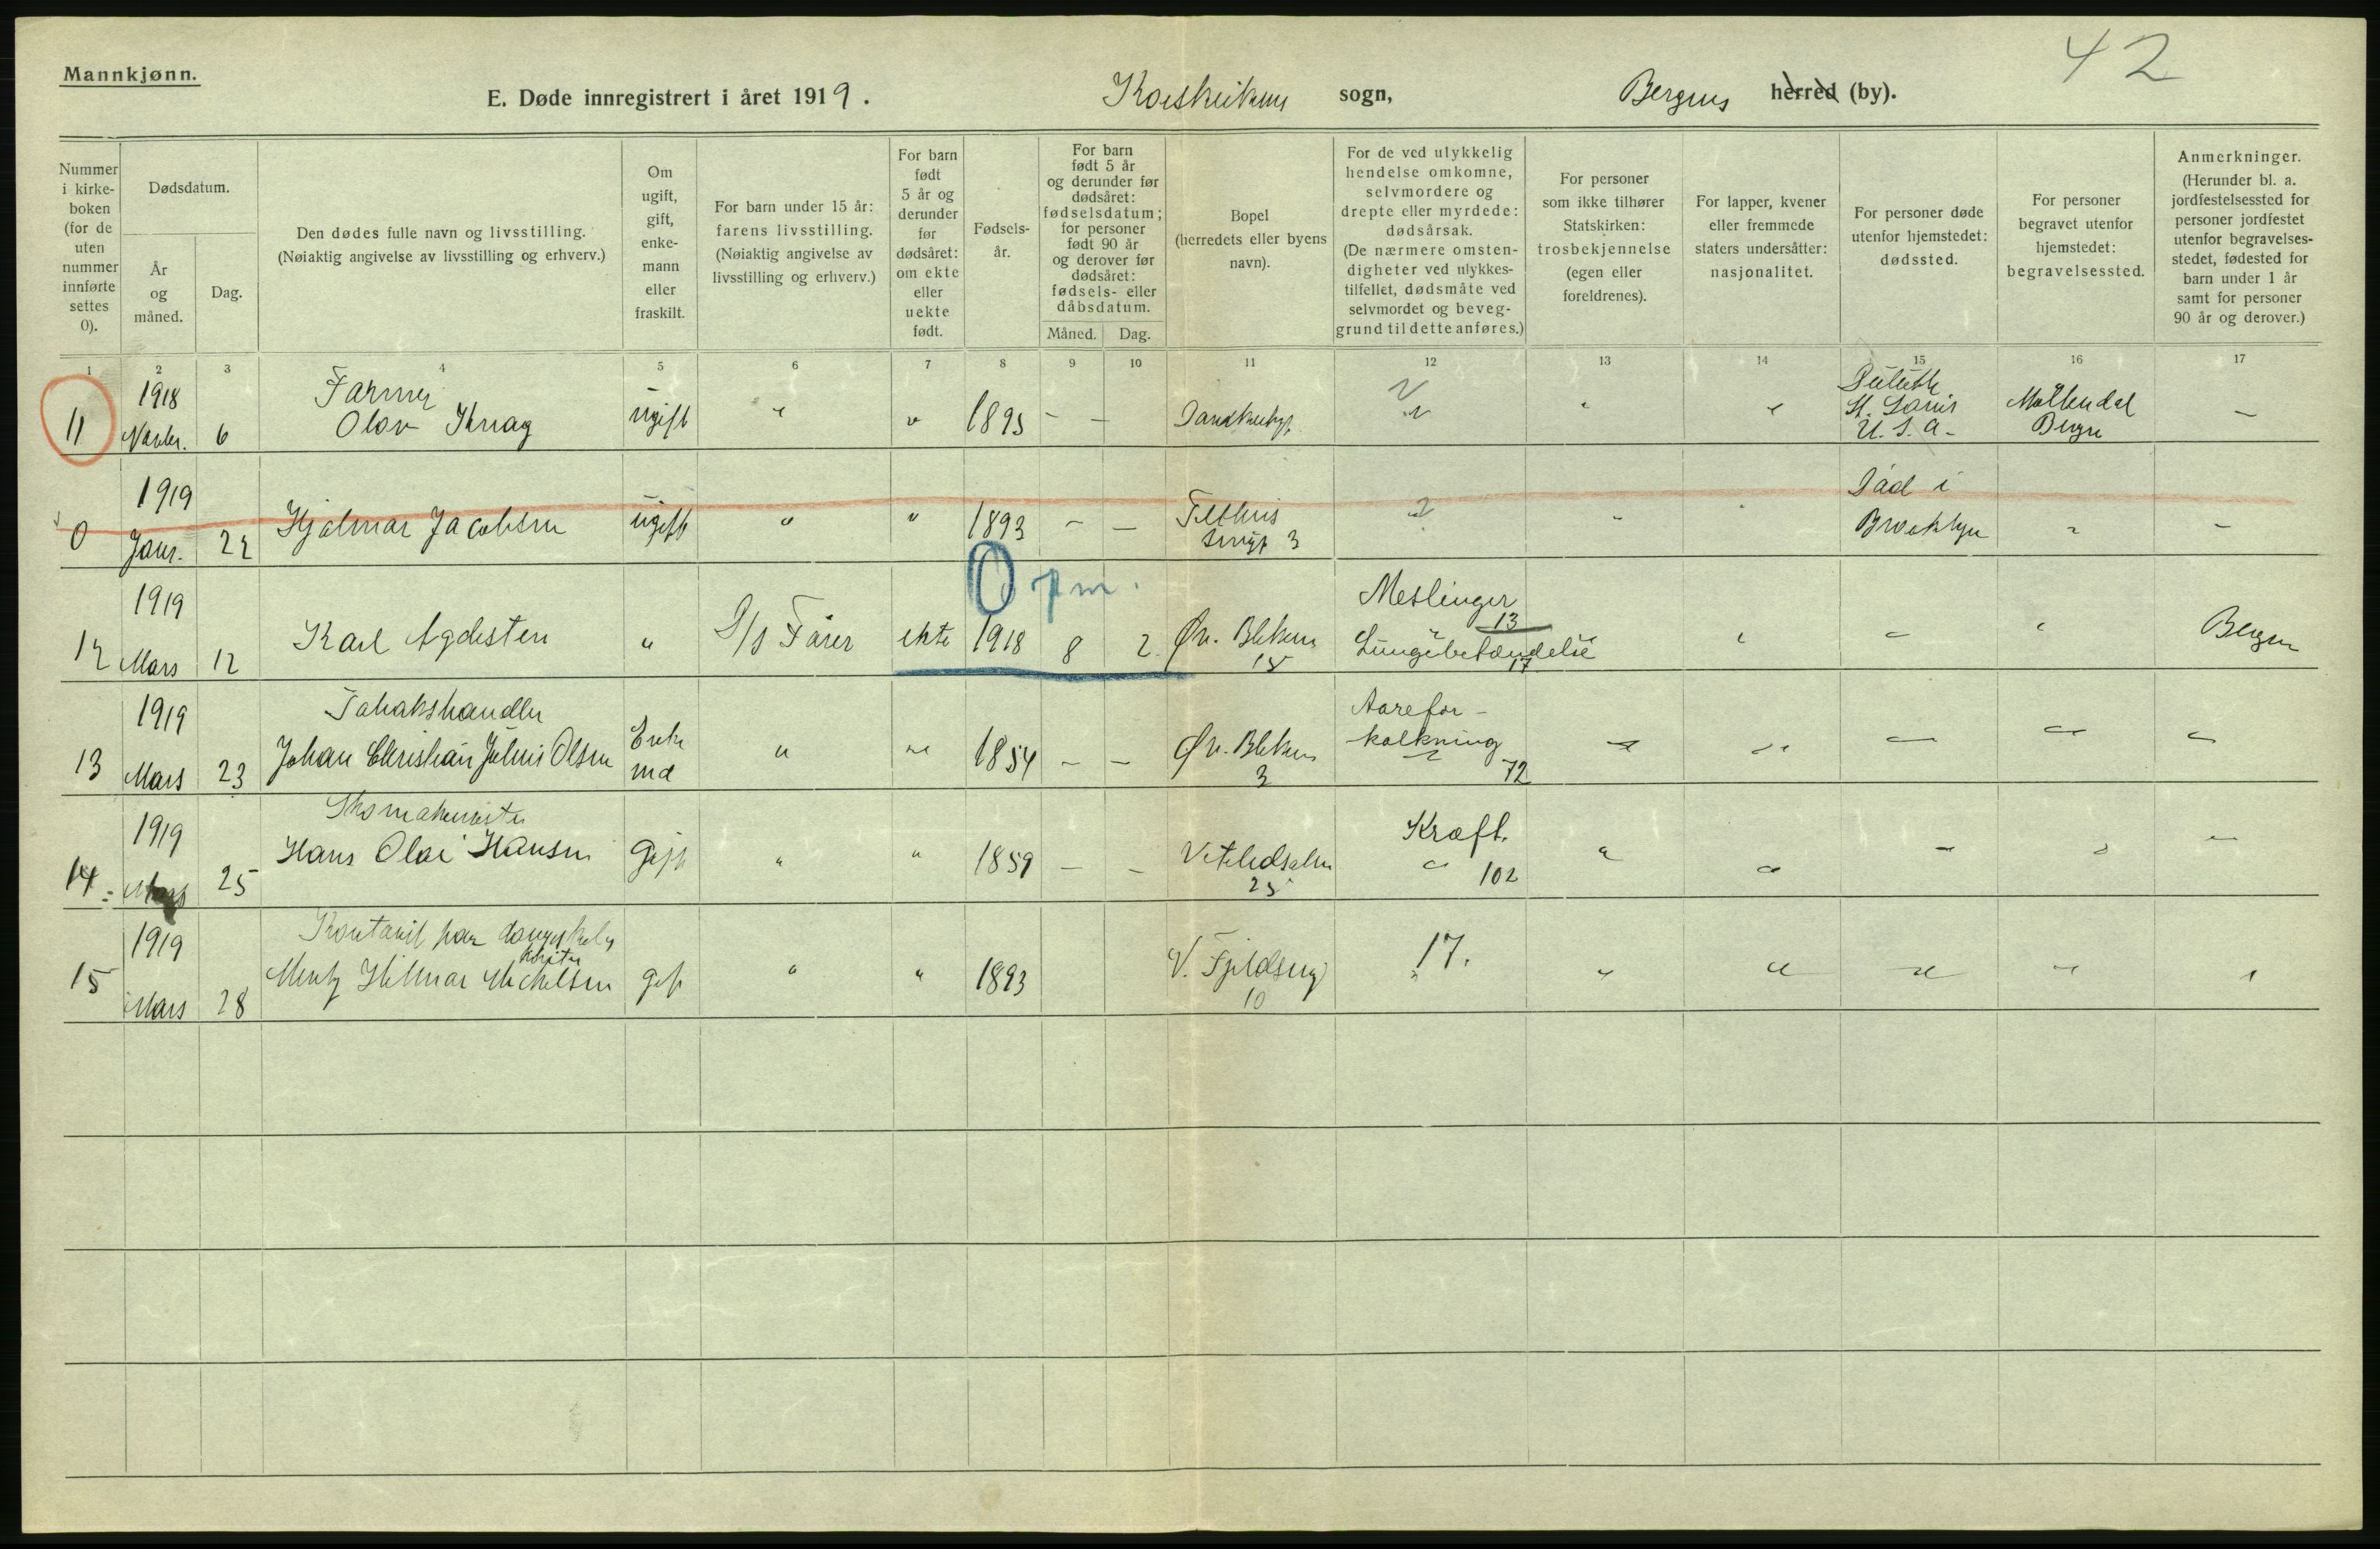 42
Mannkjønn.
E. Døde innregistrert i året 1919. Korskirkens sogn, Bergens herred (by).
Nummer i kirke-boken (for de uten nummer innførte settes 0).
Dødsdatum.
År og måned.
Dag.
Den dødes fulle navn og livsstilling.
(Nøiaktig angivelse av livsstilling og erhverv.)
Om ugift, gift, enke-mann eller fraskilt.
For barn under 15 år: farens livsstilling.
(Nøiaktig angivelse av livsstilling og erhverv.)
For barn født 5 år og derunder før dødsåret: om ekte eller uekte født.
Fødsels-år.
For barn født 5 år og derunder før dødsåret: fødselsdatum; for personer født 90 år og derover før dødsåret: fødsels- eller dåbsdatum.
Måned. Dag.
Bopel
(herredets eller byens navn).
For de ved ulykkelig hendelse omkomne, selvmordere og drepte eller myrdede: dødsårsak.
(De nærmere omsten-digheter ved ulykkes-tilfellet, dødsmåte ved selvmordet og beveg-grund til dette anføres.)
For personer som ikke tilhører Statskirken: trosbekjennelse
(egen eller foreldrenes).
For lapper, kvener eller fremmede staters undersåtter: nasjonalitet.
For personer døde utenfor hjemstedet: dødssted.
For personer begravet utenfor hjemstedet: begravelsessted.
Anmerkninger.
(Herunder bl. a. jordfestelsessted for personer jordfestet utenfor begravelses-stedet, fødested for barn under 1 år samt for personer 90 år og derover.)
1 2 3 4 5 6 7 8 9 10 11 12 13 14 15 16 17
1918 Farmer Duluth
11 Novbr. 6 Olav Knag ugift " " 1895 - - " " St. Louis Møllendal -
U.S.A. Bergen
1919 Død i
0 Janr. 22 Hjalmar Jacobsen ugift " " 1893 - - 3 " " Brooklyn " -
0 pm.
1919 Meslinger 13
12 Mars 12 Karl Agdesten " S/S Fører ekte 1918 8 2 Øv. Blekev. 15 Lungebetændelse 17 " - " Bergen
1919 Tobakshandler Aarefor-
13 Mars 23 Johan Christian Julius Olsen Enkemd " " 1854 - - Øv. Blekev. 3 kalkning 72 " " - " "
1919 Skomakermester Kræft.
14 Mars 25 Hans Olai Hansen gift " " 1859 - - 25 " 102 " " " " "
1919
15 Mars 28 Mentz Hilmar Michelsen gift " " 1893 V. Fjeldsmug 10 17. " " " " "